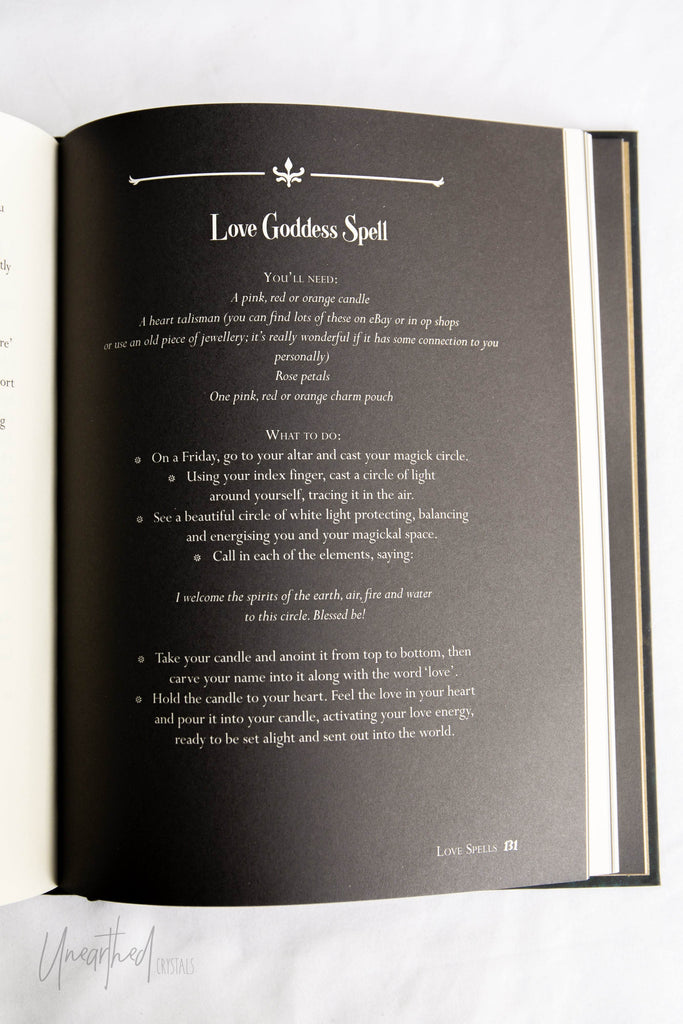 u
tly
re'
ort
g
Love Goddess Spell
You'll need:
A pink, red or orange candle
A heart talisman (you can find lots of these on eBay or in op shops
or use an old piece of jewellery; it's really wonderful if it has some connection to you
personally)
Rose petals
One pink, red or orange charm pouch
What to do:
On a Friday, go to your altar and cast your magick circle.
Using your index finger, cast a circle of light
around yourself, tracing it in the air.
See a beautiful circle of white light protecting, balancing
and energising you and your magickal space.
Call in each of the elements, saying:
I welcome the spirits of the earth, air, fire and water
to this circle. Blessed be!
Take your candle and anoint it from top to bottom, then
carve your name into it along with the word 'love'.
Hold the candle to your heart. Feel the love in your heart
and pour it into your candle, activating your love energy,
ready to be set alight and sent out into the world.
Love Spells 131
Unearthed CRYSTALS